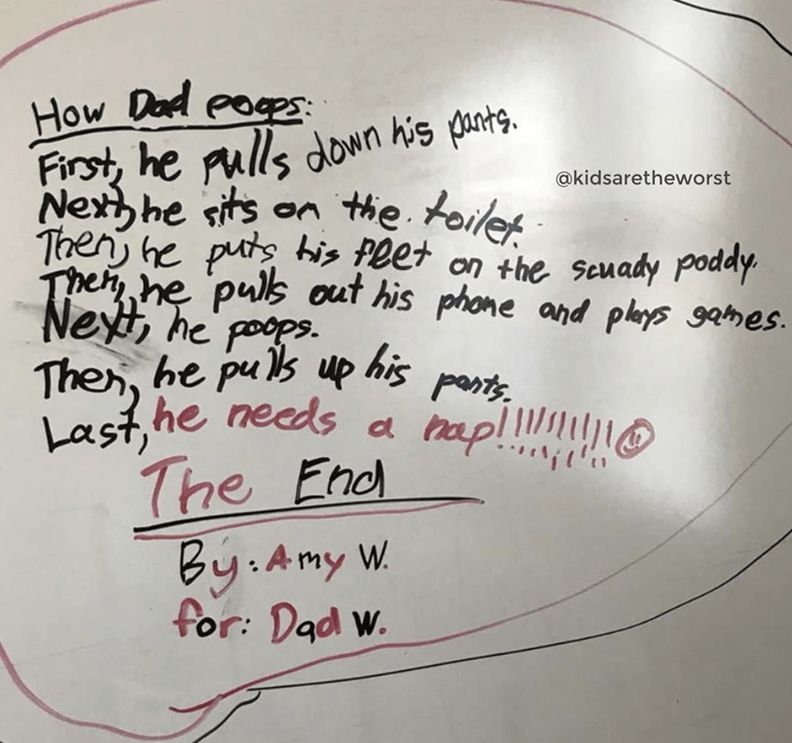 How Dad poops:
First, he pulls down his pants.
@kidsaretheworst
Next, he sits on the toilet.
Then, he puts his feet on the scuady poddy.
Then, he pulls out his phone and plays games.
Next, he poops.
Then, he pulls up his pants.
Last, he needs a nap!!!!!!!!!!
The End
By: Amy W.
for: Dad W.